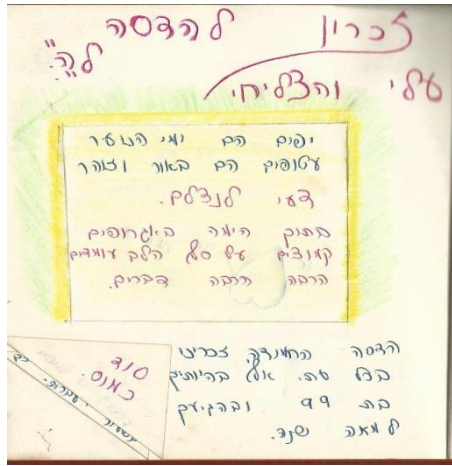 זכרון להדסה
עלי והצליחי
יפים הם ימי הנוער
עטופים הם באור וזוהר
דעי לנצלם.
בתוך הימה באגרופים
קמוצים על סף הלב עומדים
הרבה הרבה דברים.
הדסה החמודה זכרינו
בכל עת. אך
בת 99 ובהגיעך
למאה שנה.
סוד
כמוס.